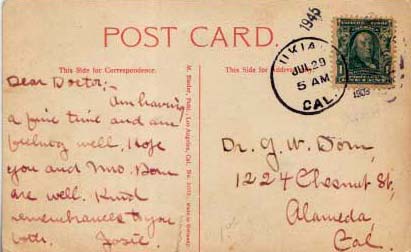 1945
POST CARD.
This Side for Correspondence.
This Side for Address
UKIAH
JUL 29
5 AM
CAL.
1908
Dear Doctor;-
Am having
a fine time and am
feeling well. Hope
you and Mrs. Dorn
are well. Kind
remembrances to you
both. Josie.
M. Rieder, Publ., Los Angeles, Cal. No.
Made in Germany
Dr. G. W. Dorn,
1224 Chesnut St,
Alameda
Cal.